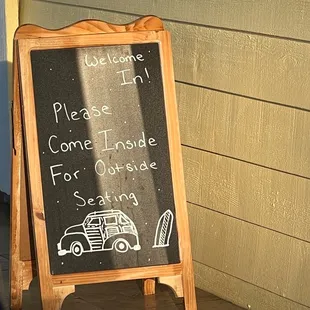 Welcome
In!
Please
Come Inside
For Outside
Seating